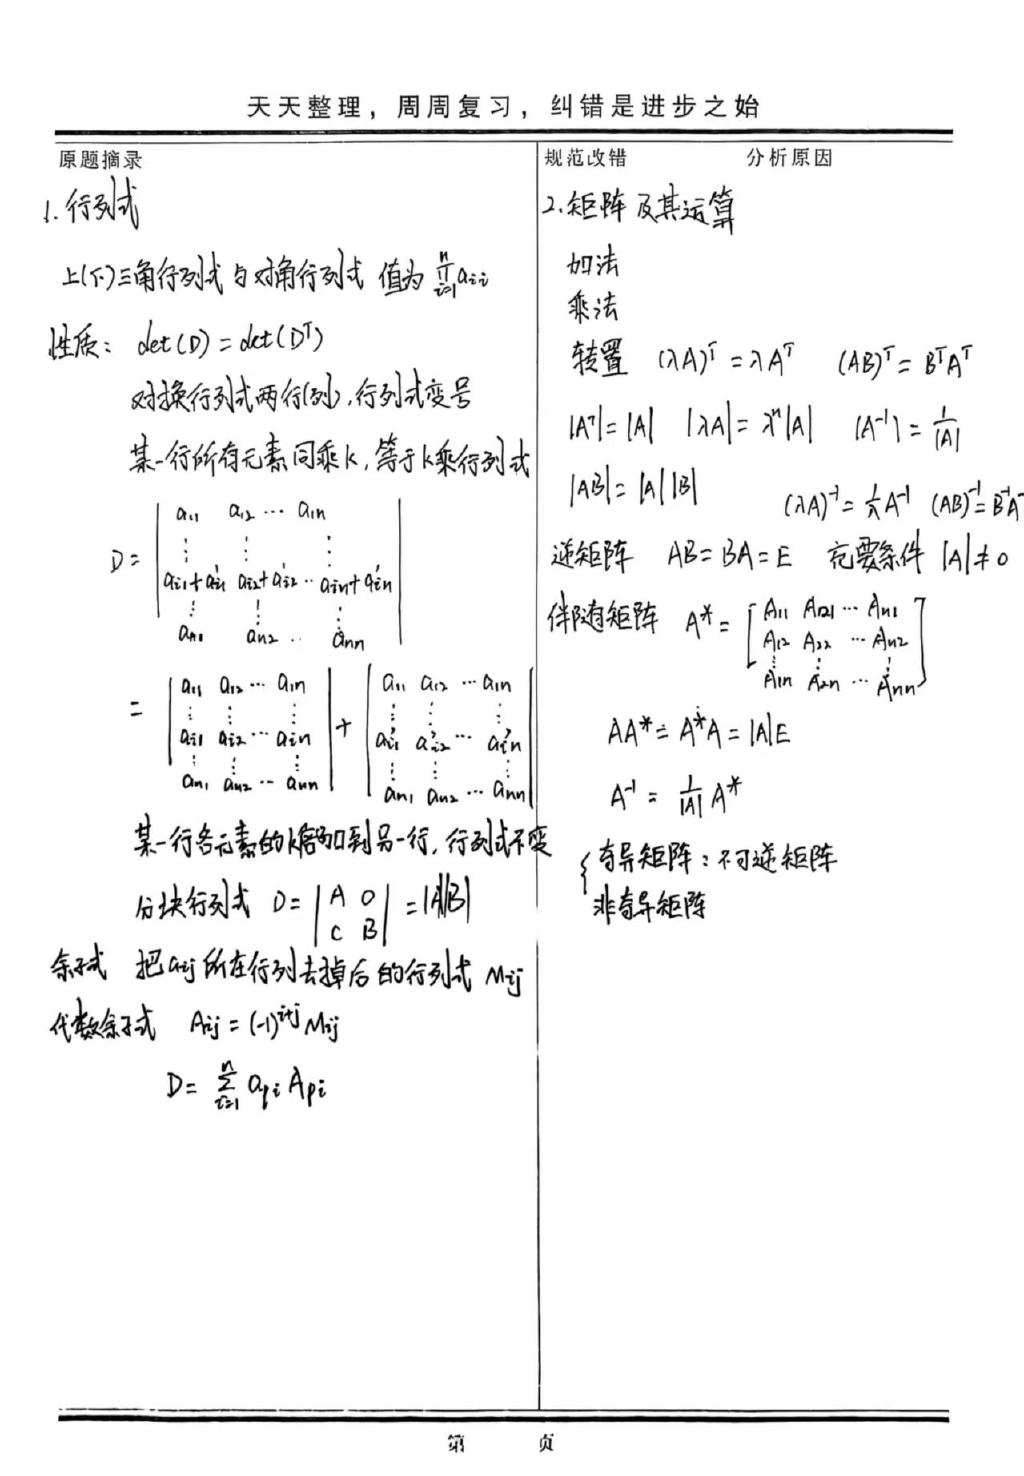 天天整理，周周复习，纠错是进步之始
原题摘录
1. 行列式
上(下)三角行列式与对角行列式 值为 ∏_{i=1}^{n} a_{ii}
性质： det(D) = det(D^T)
对换行列式两行(列)，行列式变号
某一行所有元素同乘k，等于k乘行列式
D = | a_{11} a_{12} ⋯ a_{1n}
⋮ ⋮ ⋮
a_{i1}+a'_{i1} a_{i2}+a'_{i2} ⋯ a_{in}+a'_{in}
⋮ ⋮ ⋮
a_{n1} a_{n2} ⋯ a_{nn} |
= | a_{11} a_{12} ⋯ a_{1n} | + | a_{11} a_{12} ⋯ a_{1n} |
⋮ ⋮ ⋮ ⋮ ⋮ ⋮
a_{i1} a_{i2} ⋯ a_{in} a'_{i1} a'_{i2} ⋯ a'_{in}
⋮ ⋮ ⋮ ⋮ ⋮ ⋮
a_{n1} a_{n2} ⋯ a_{nn} a_{n1} a_{n2} ⋯ a_{nn}
某一行各元素的k倍加到另一行，行列式不变
分块行列式 D = | A O
C B | = |A||B|
余子式 把a_{ij}所在行列去掉后的行列式 M_{ij}
代数余子式 A_{ij} = (-1)^{i+j} M_{ij}
D = ∑_{i=1}^{n} a_{pi} A_{pi}
规范改错 分析原因
2. 矩阵及其运算
加法
乘法
转置 (λA)^T = λA^T (AB)^T = B^T A^T
|A^T| = |A| |λA| = λ^n|A| |A^{-1}| = 1/|A|
|AB| = |A||B| (λA)^{-1} = 1/λ A^{-1} (AB)^{-1} = B^{-1}A^{-1}
逆矩阵 AB = BA = E 充要条件 |A| ≠ 0
伴随矩阵 A* = [ A_{11} A_{21} ⋯ A_{n1}
A_{12} A_{22} ⋯ A_{n2}
⋮ ⋮ ⋮
A_{1n} A_{2n} ⋯ A_{nn} ]
AA* = A*A = |A|E
A^{-1} = 1/|A| A*
{ 奇异矩阵：不可逆矩阵
非奇异矩阵
第 页